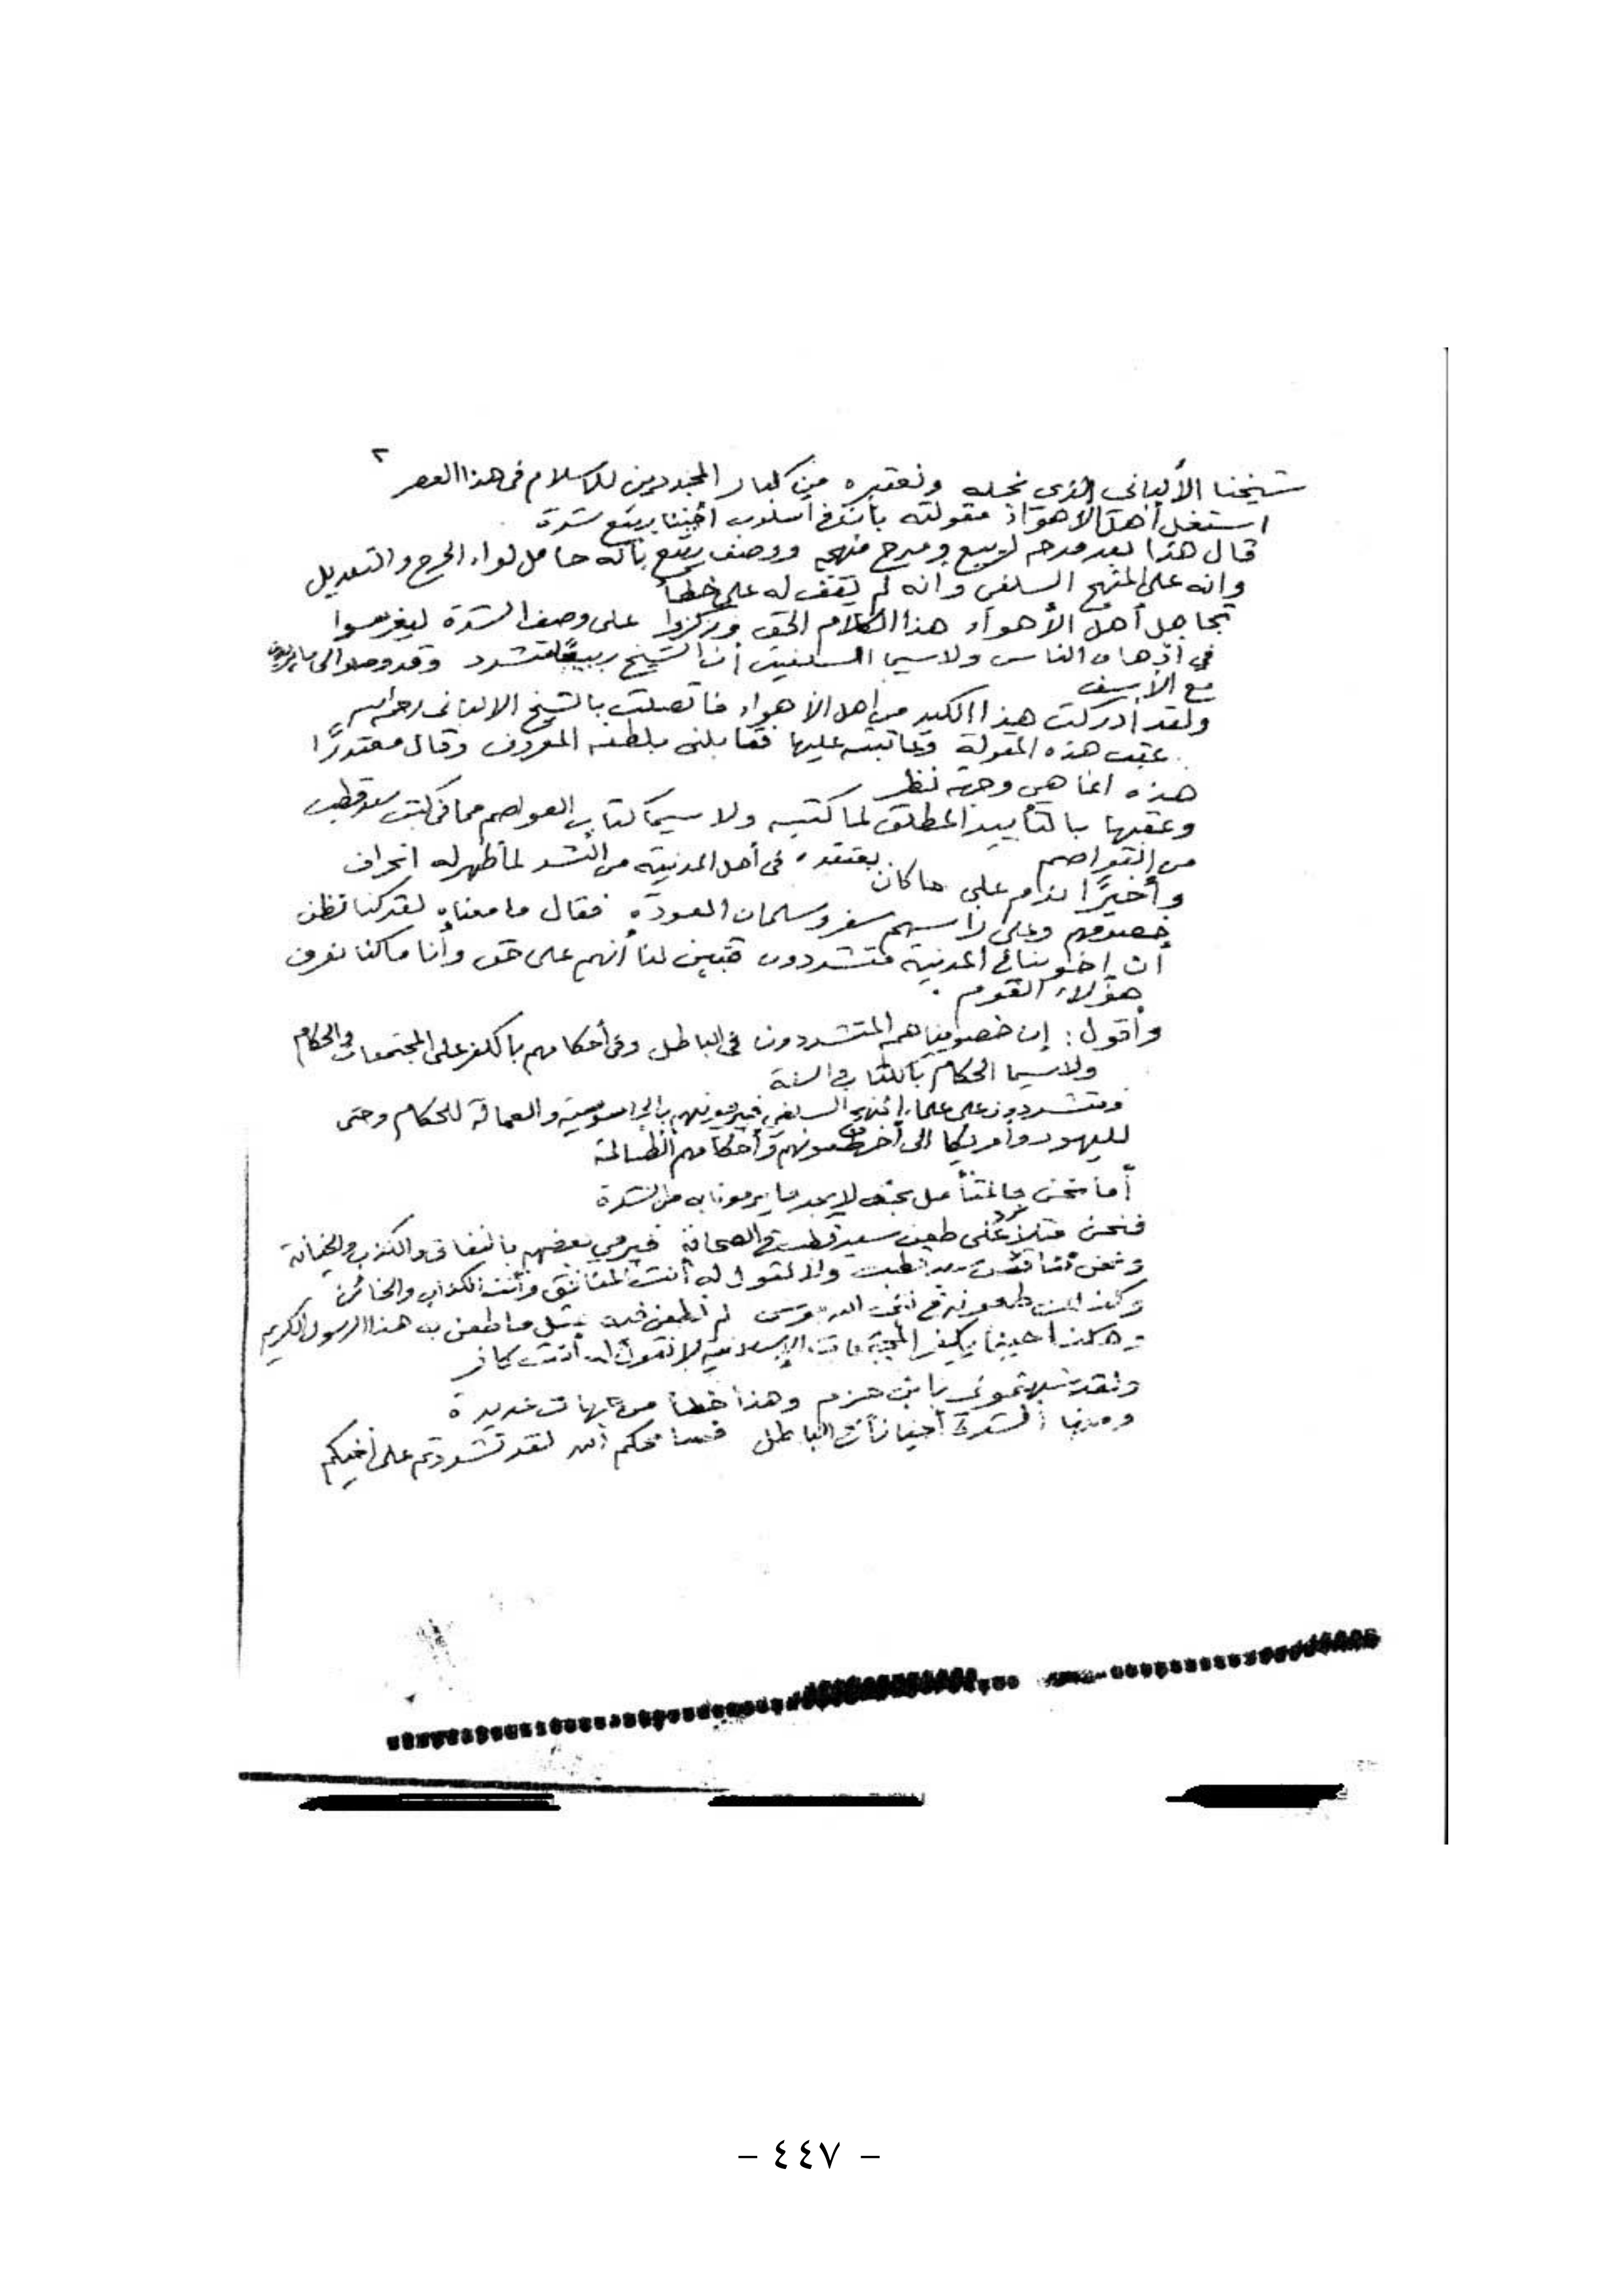 ٢
شيخنا الألباني الذي نجله ونعتبره من كبار المجددين للاسلام في هذا العصر
استغل أهل الأهواء مقولته بأن في اسلوب أخينا ربيع شدة
قال هذا بعد مدحه لربيع ومدح منهجه ووصف ربيع بأنه حامل لواء الجرح والتعديل
وانه على المنهج السلفي وانه لم يقف له على خطأ
تجاهل أهل الأهواء هذا الكلام الحق وركزوا على وصف الشدة ليغرسوا
في أذهان الناس ولاسيما السلفيين أن الشيخ ربيعًا متشدد وقد وصلوا الى ما يريدون
مع الأسف
ولقد أدركت هذا الكيد من اهل الأهواء فاتصلت بالشيخ الالباني رحمه الله
عقب هذه المقولة وعاتبته عليها فقابلني بلطفه المعروف وقال معتذرًا
هذه انما هي وجهة نظر
وعقبها بالتأييد المطلق لما كتبته ولا سيما كتاب العواصم مما في كتب سيد قطب
من القواصم
وأخيرًا ندم على ما كان يعتقده في أهل المدينة من التشدد لما ظهر له انحراف
خصومهم وعلى رأسهم سفر وسلمان العودة فقال ما معناه لقد كنا نظن
أن إخواننا في المدينة متشددون فتبين لنا أنهم على حق وأنا ما كنا نعرف
هؤلاء القوم .
وأقول : إن خصومنا هم المتشددون في الباطل وفي أحكامهم بالكفر على المجتمعات والحكام
ولاسيما الحكام بالكتاب والسنة
ومتشددون على علماء المنهج السلفي فيرمونهم بالجاسوسية والعمالة للحكام وحتى
لليهود وأمريكا الى آخر طعونهم وأحكامهم الظالمة
أما نحن فالمتأمل بحق لا يجد ما يرموننا به من الشدة
فنحن مثلاً نرد على طعن سيد قطب في الصحابة فيرمي بعضهم بالنفاق والكذب والخيانة
ونحن نناقش سيد قطب ولا نقول له أنت المنافق وأنت الكذاب والخائن
وكذا لما طعن في نبي الله موسى لم نطعن فيه بمثل ما طعن به هذا الرسول الكريم
وهكذا حينما يكفر المجتمعات الإسلامية لا نقول له أنت كافر
ولقد شبهتموني بابن حزم وهذا خطأ من جهات عديدة
ومنها الشدة أحيانًا في الباطل فسامحكم الله لقد تشددتم على أخيكم
- ٤٤٧ -